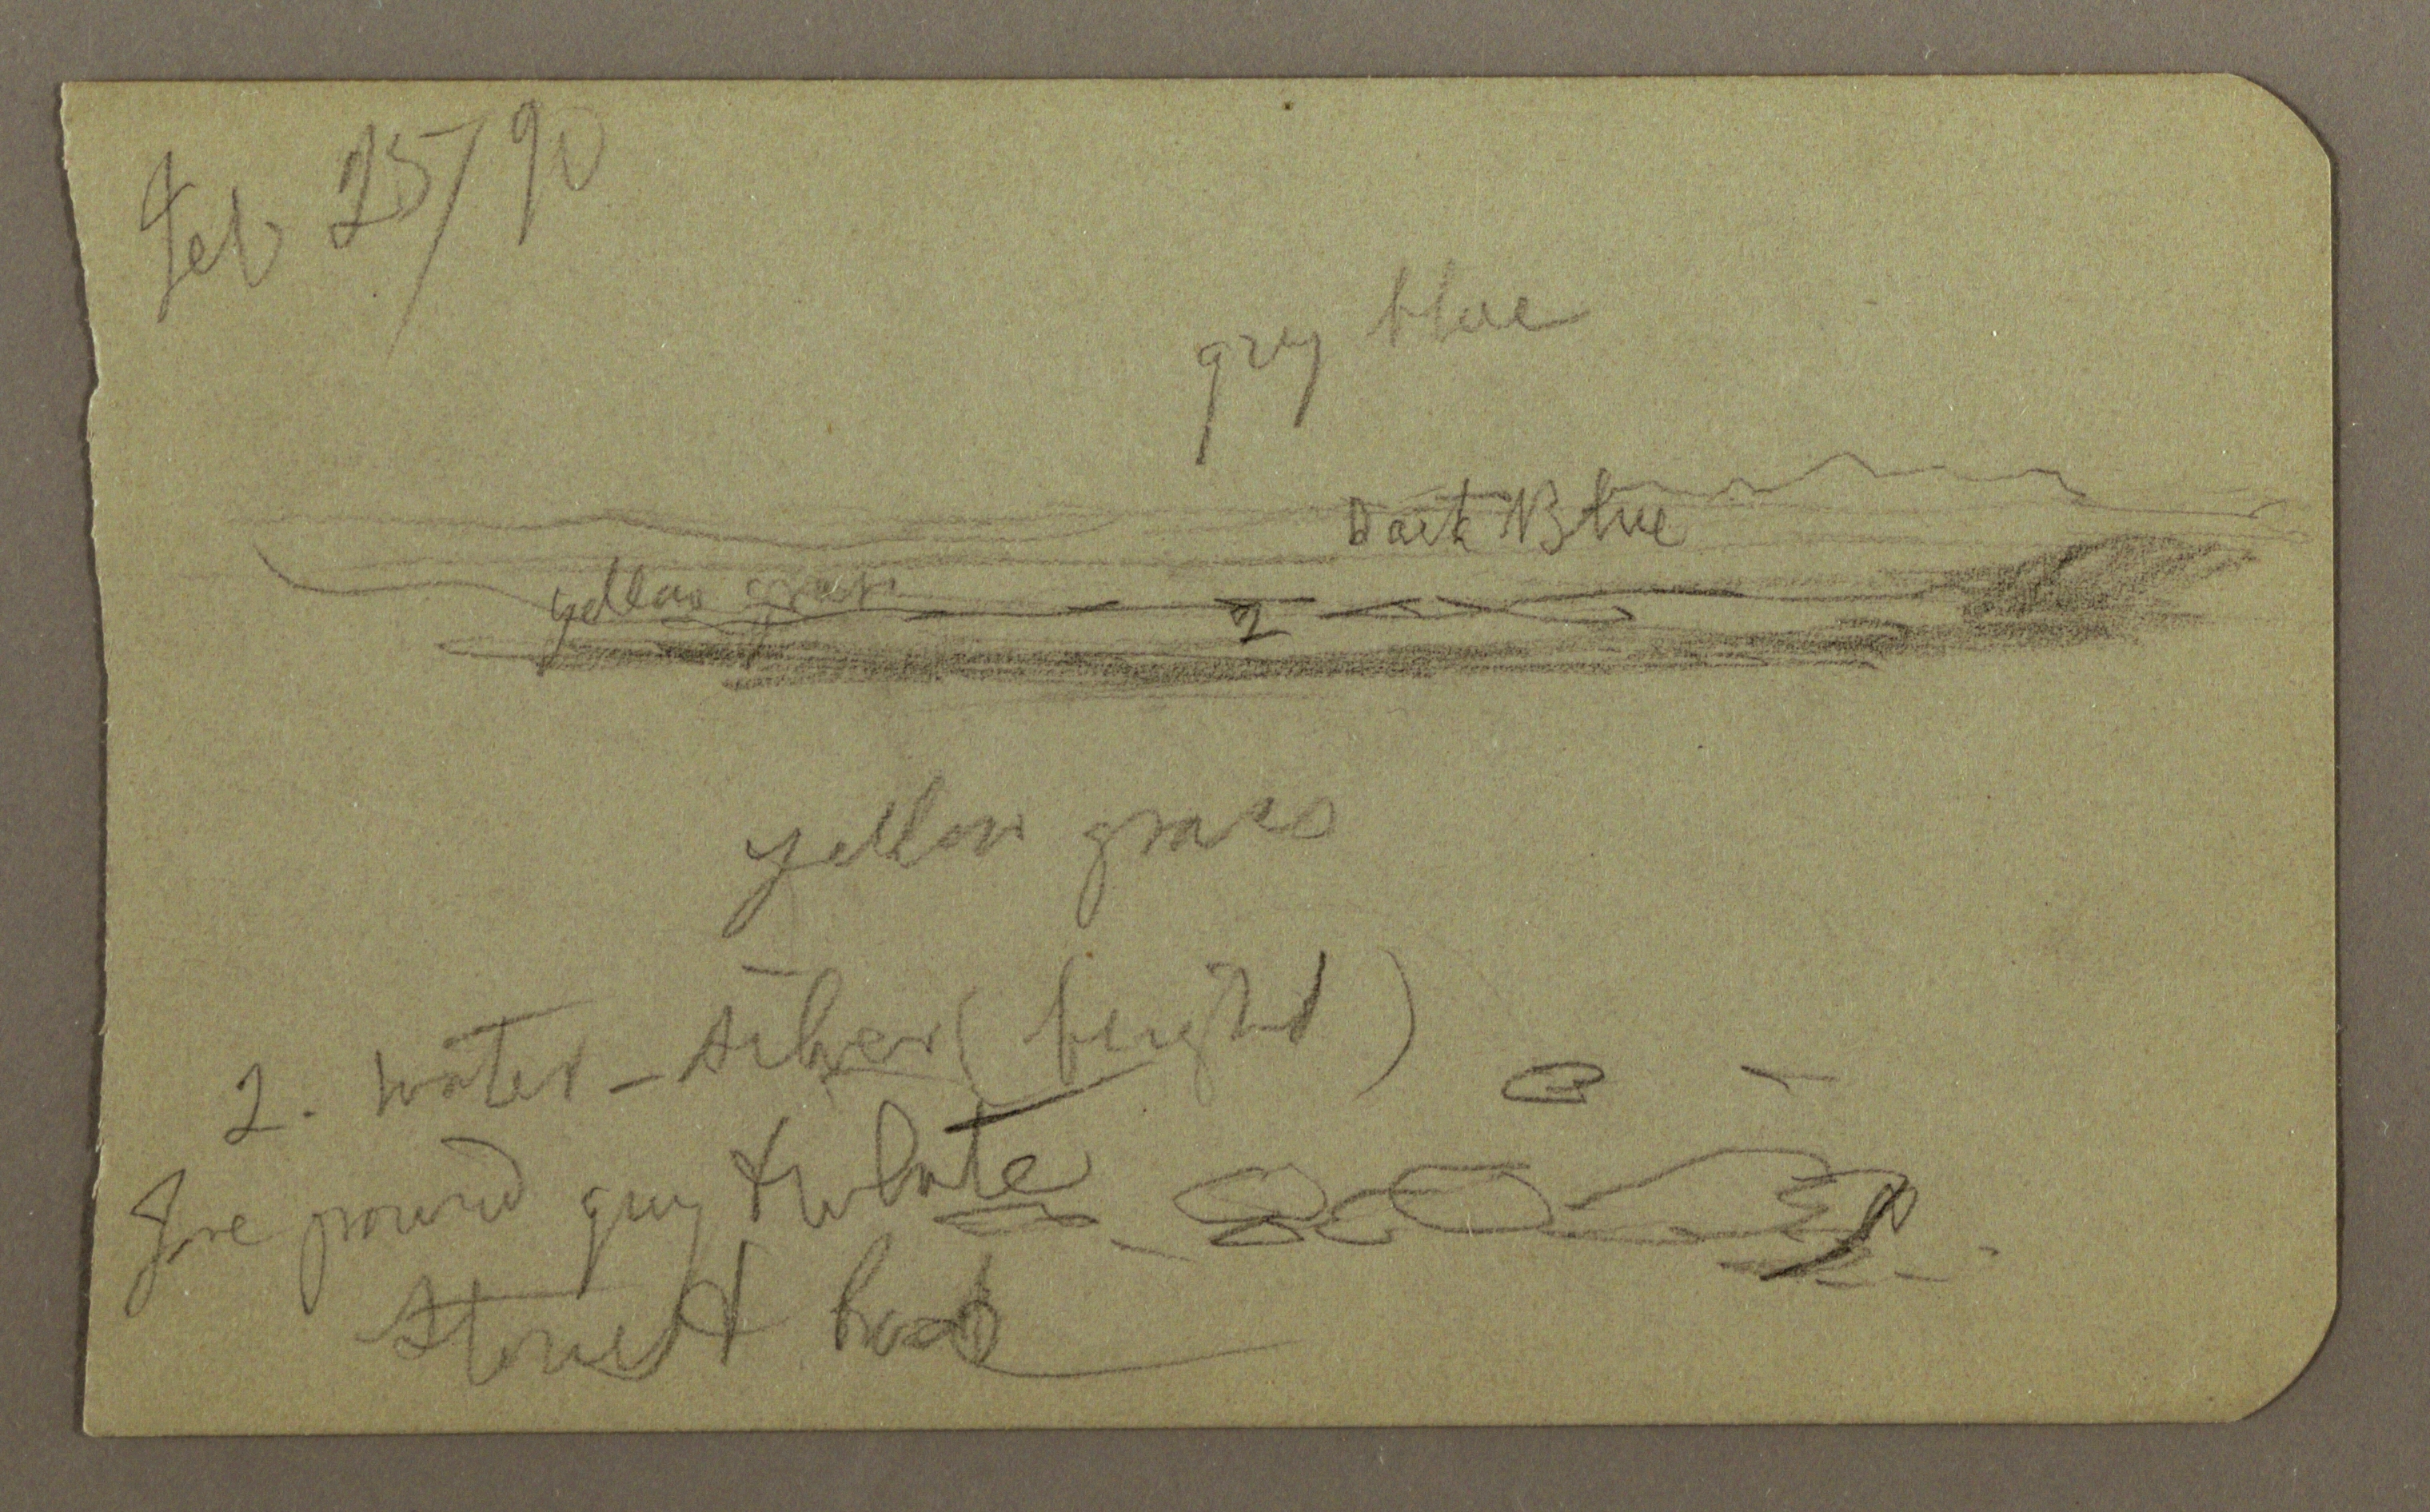 Feb 25/90
grey blue
Dark Blue
yellow grass
2
yellow grass
2. water - silver (bright)
Fore ground grey & white
stones &